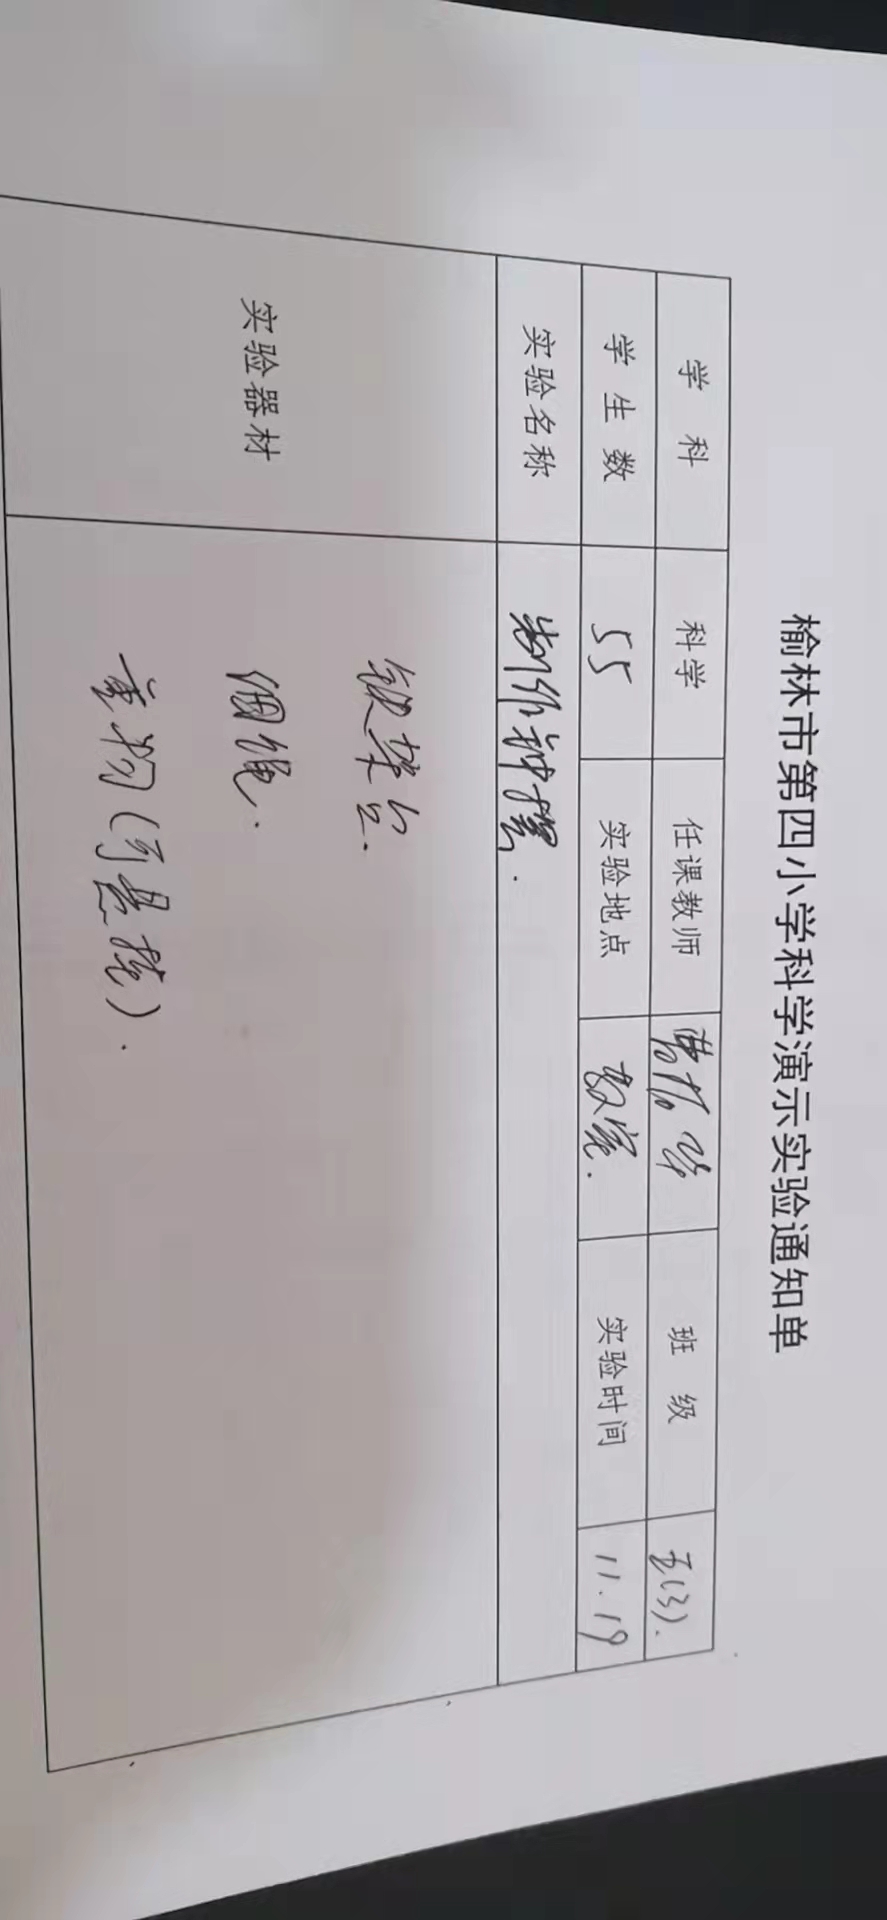 榆林市第四小学科学演示实验通知单
学科 科学 任课教师 班级 五(3).
学生数 55 实验地点 教室. 实验时间 11.19
实验名称 制作钟摆.
实验器材 铁架台.
细绳.
重物(可悬挂).